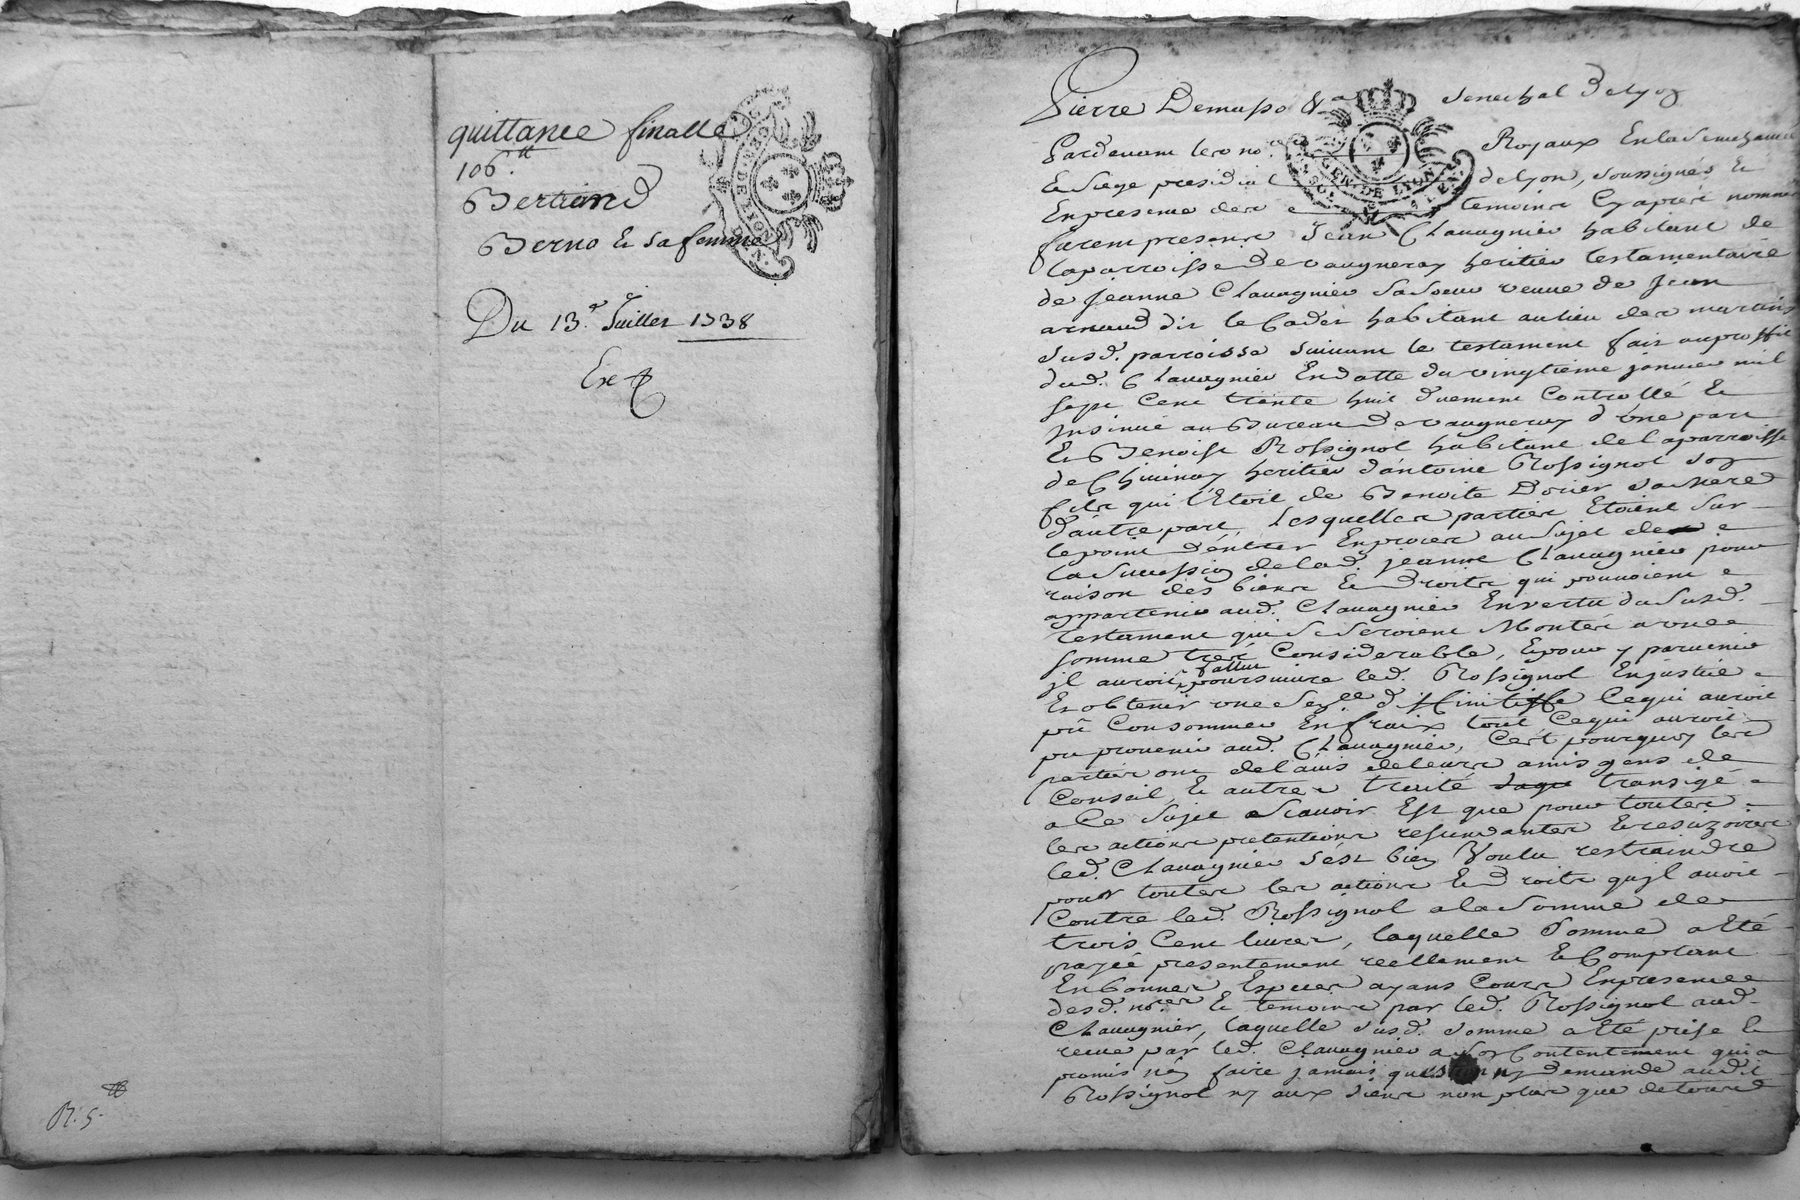 quittance finalle
106.tt
Bertrand
Berno & sa femme
Du 13.e Juillet 1738
Ex
R. 5.tt
Pierre Demasso &.a Senechal De Lyon
Pardevant les no.res Royaux En la Senechaussée
& Siege presidial de Lyon, soussignés &
En presence des temoins Cy apres nommes
furent presents Jean Chavagnieu habitant de
la parroisse De vaugneray heritier testamentaire
de Jeanne Chavagnieu sa soeur veuve de Jean
arnaud dit le Cadet habitant au lieu des martins
Susd. parroisse suivant le testament fait au proffit
dud. Chavagnieu En datte du vingtieme janvier mil
sept Cent trente huit duement Controllé &
insinué au Bureau De vaugneray d'Une part
& Benoist Rossignol habitant de la parroisse
de Chivinay heritier d'antoine Rossignol son
fils qui l'Etoit de Benoite Dorier sa Mere
D'autre part, Lesquelles parties Etoient Sur
le point d'éntrer En proces au Sujet de
la Succession de lad. jeanne Chavagnieu pour
raison des biens & Droits qui pouvoient
appartenir aud. Chavagnieu En vertu du Susd.
Testament qui Se Seroient Monter a vne
somme tres Considerable, Et pour y parvenir
jl auroit fallut poursuivre led. Rossignol En justice
Et obtenir vne Sen.ce diffinitiffe Ce qui auroit
pû Consommer En fraix tout Ce qui auroit
pu provenir aud. Chavagnieu, C'est pourquoy les
parties ont de l'avis de leurs amis gens de
Conseil, & autres traité transigé
a Ce Sujet a Scavoir Est que pour toutes
les actions pretentions rescindantes & rescizoires
led. Chavagnieu s'est bien Voulu restraindre
pour toutes les actions & Droits qu'jl avoit
Contre led. Rossignol a la Somme de
trois Cent livres, laquelle Somme a Eté
payée presentement reellement & Comptant
En bonnes Especes ayans Cours En presence
desd. no.res & temoins par led. Rossignol aud.
Chavagnier, laquelle susd. somme a Eté prise &
receue par led. Chavagnieu a son Contentement qui a
promis n'en faire jamais question ny demande audit
Rossignol ny aux siens non plus que de tous